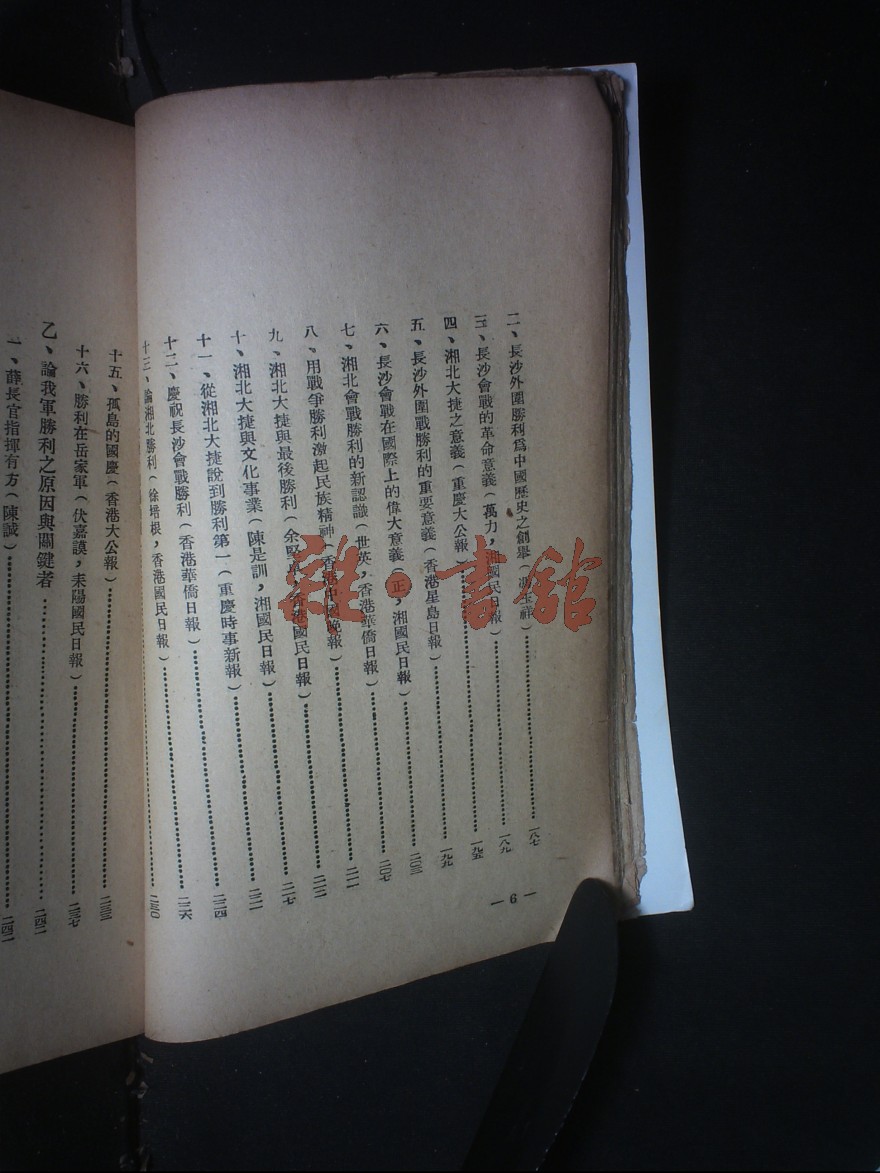 二、長沙外圍勝利爲中國歷史之創舉（馮玉祥）…………一八七
三、長沙會戰的革命意義（萬力，湘國民日報）…………一八九
四、湘北大捷之意義（重慶大公報）…………一九五
五、長沙外圍戰勝利的重要意義（香港星島日報）…………一九九
六、長沙會戰在國際上的偉大意義（正，湘國民日報）…………二〇三
七、湘北會戰勝利的新認識（世英，香港華僑日報）…………二〇七
八、用戰爭勝利激起民族精神（香港中國晚報）…………二一一
九、湘北大捷與最後勝利（余堅卓，香港國民日報）…………二一三
十、湘北大捷與文化事業（陳是訓，湘國民日報）…………二一七
十一、從湘北大捷說到勝利第一（重慶時事新報）…………二二一
十二、慶祝長沙會戰勝利（香港華僑日報）…………二二四
十三、論湘北勝利（徐培根，香港國民日報）…………二二六
二三〇
十五、孤島的國慶（香港大公報）…………二三三
十六、勝利在岳家軍（伏嘉謨，耒陽國民日報）…………二三七
乙、論我軍勝利之原因與關鍵者…………二四二
一、薛長官指揮有方（陳誠）…………二四二
— 6 —
雜·書館